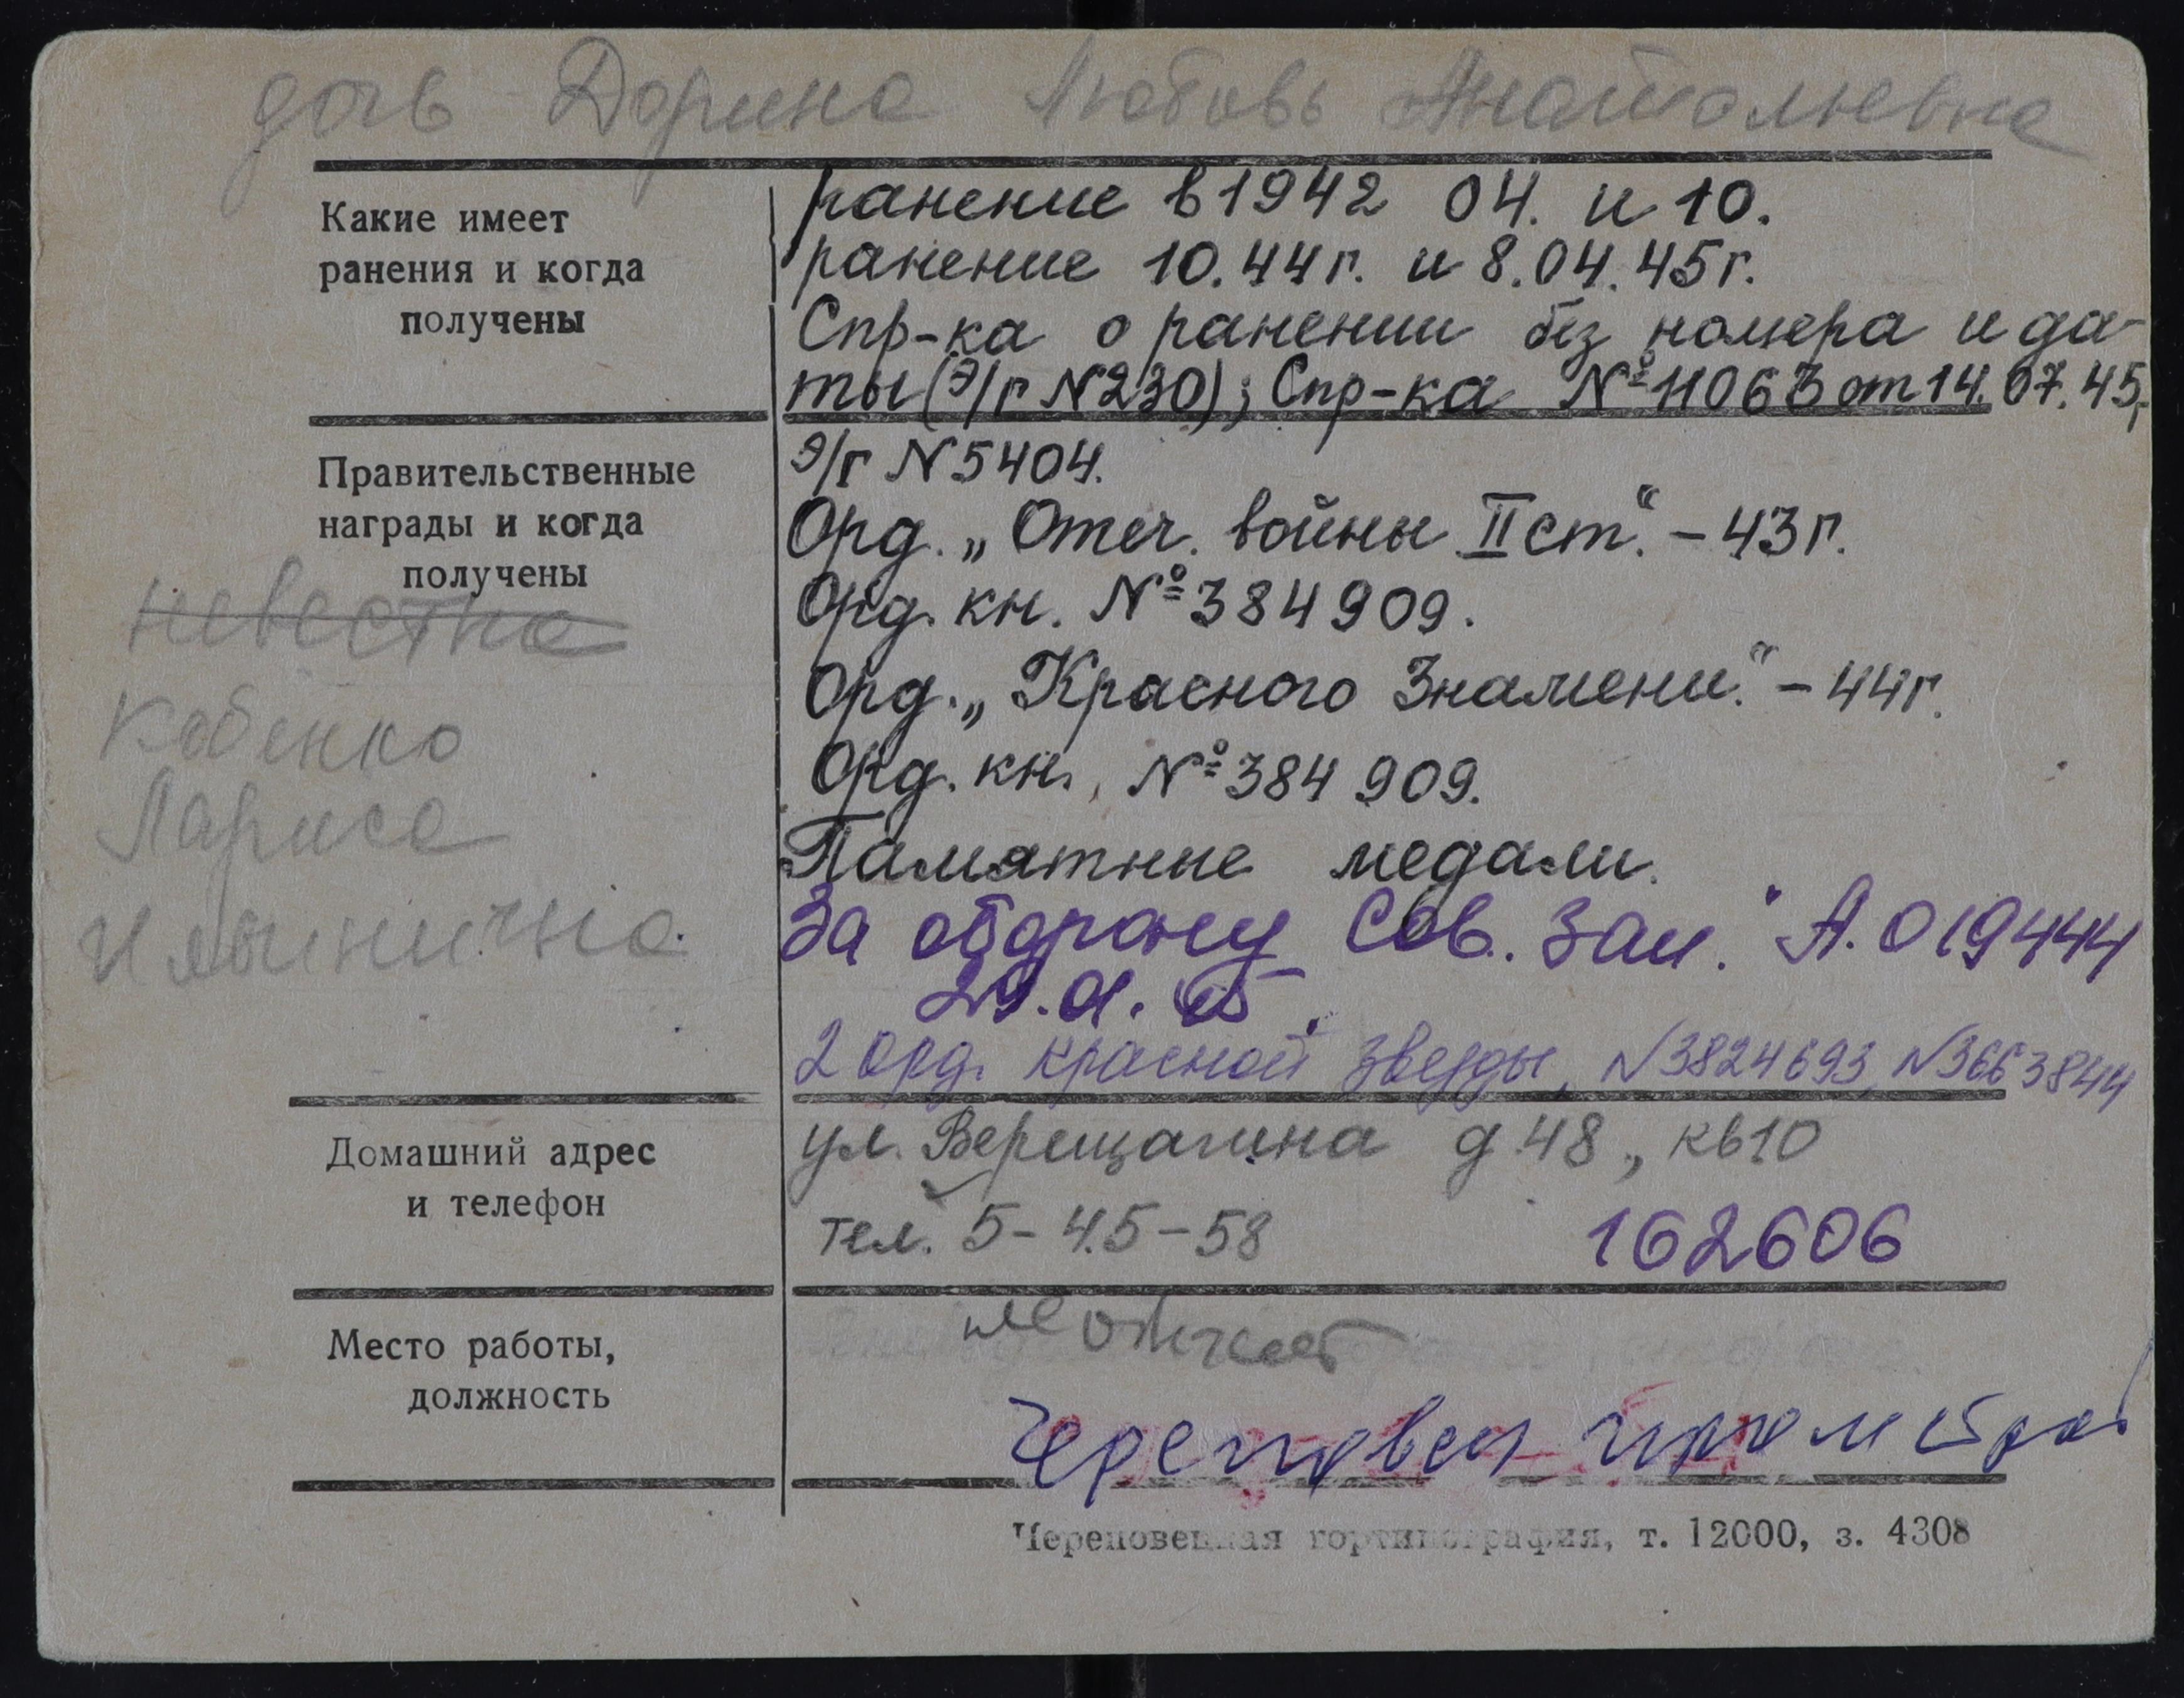 дочь Дорина Любовь Анатольевна
Какие имеет
ранения и когда
получены
ранение в 1942 04. и 10.
ранение 10.44г. и 8.04.45г.
Спр-ка о ранении без номера и да-
ты (Э/г N230); Спр-ка № 11063 от 14.07.45,
э/г N5404.
Правительственные
награды и когда
получены
Орд. „Отеч. войны II ст.“ – 43г.
Орд. кн. № 384909.
Орд. „Красного Знамени.“ – 44г.
Орд. кн. № 384909.
Памятные медали.
За оборону Сов. Зап. " А. 019444
2 орд. Красной Звезды, N3824693, N3663844
невестка
Кобенко
Лариса
Ильинична
Домашний адрес
и телефон
ул. Верещагина д.48, кв10
тел. 5-45-58 162606
Место работы,
должность
Череповец
Череповецкая гортипография, т. 12000, з. 4308